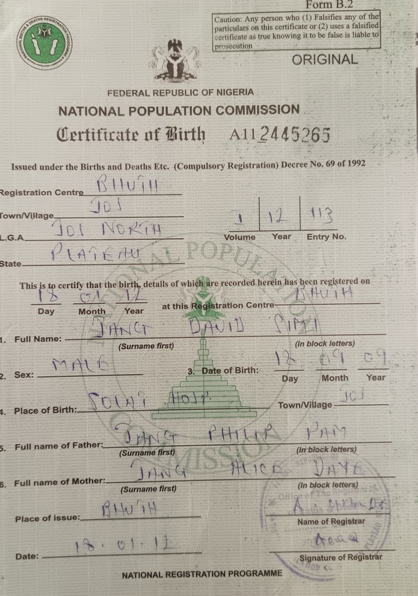 Form B.2
Caution: Any person who (1) Falsifies any of the
particulars on this certificate or (2) uses a falsified
certificate as true knowing it to be false is liable to
prosecution
ORIGINAL
FEDERAL REPUBLIC OF NIGERIA
NATIONAL POPULATION COMMISSION
Certificate of Birth A11 2445265
Issued under the Births and Deaths Etc. (Compulsory Registration) Decree No. 69 of 1992
Registration Centre BHUTH
Town/Village JOS
L.G.A. JOS NORTH
1 12 113
Volume Year Entry No.
State PLATEAU
This is to certify that the birth, details of which are recorded herein has been registered on
18 01 12 at this Registration Centre BHUTH
Day Month Year
1. Full Name: JANG DAVID SIMI
(Surname first) (In block letters)
2. Sex: MALE 3. Date of Birth: 09 09
Day Month Year
4. Place of Birth: HOSP Town/Village JOS
5. Full name of Father: JANG PHILIP PAM
(Surname first) (In block letters)
6. Full name of Mother: JANG ALICE
(Surname first) (In block letters)
Place of issue: BHUTH
Name of Registrar
Date: 18.01.12
Signature of Registrar
NATIONAL REGISTRATION PROGRAMME